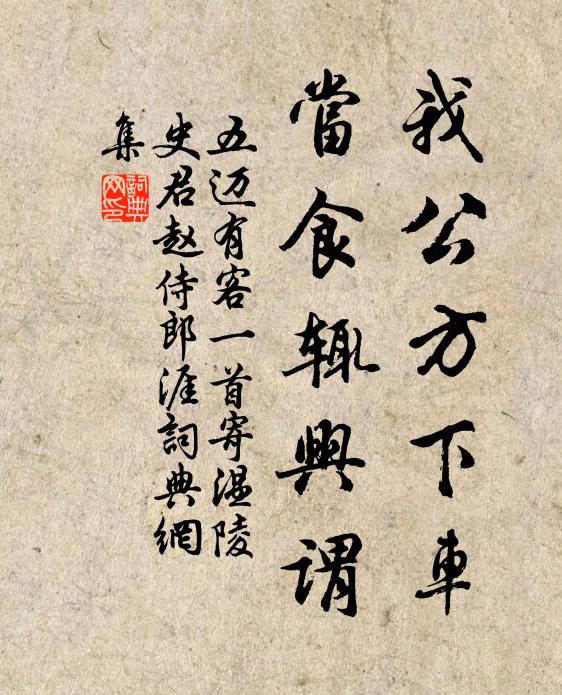 我公方下車
當食輙興謂
五迈有客一首寄温陵
史君赵侍郎涯詞典網
集
詞典
网印